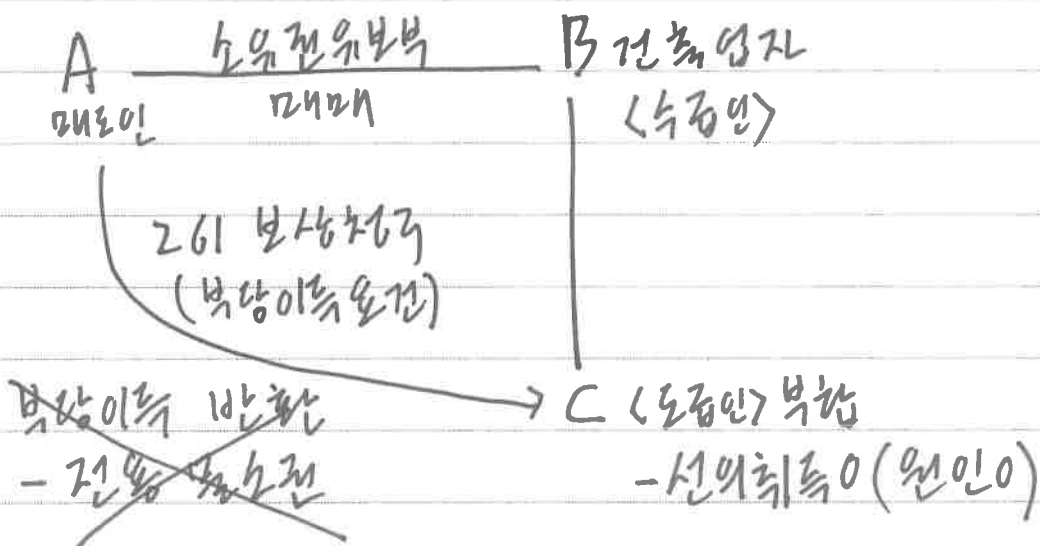 A 소유권유보부 B 건축업자
매도인 매매 <수급인>
261 보상청구
(부당이득 요건)
부당이득 반환 C <도급인> 부합
- 전용물소권 - 선의취득 O (원인 O)